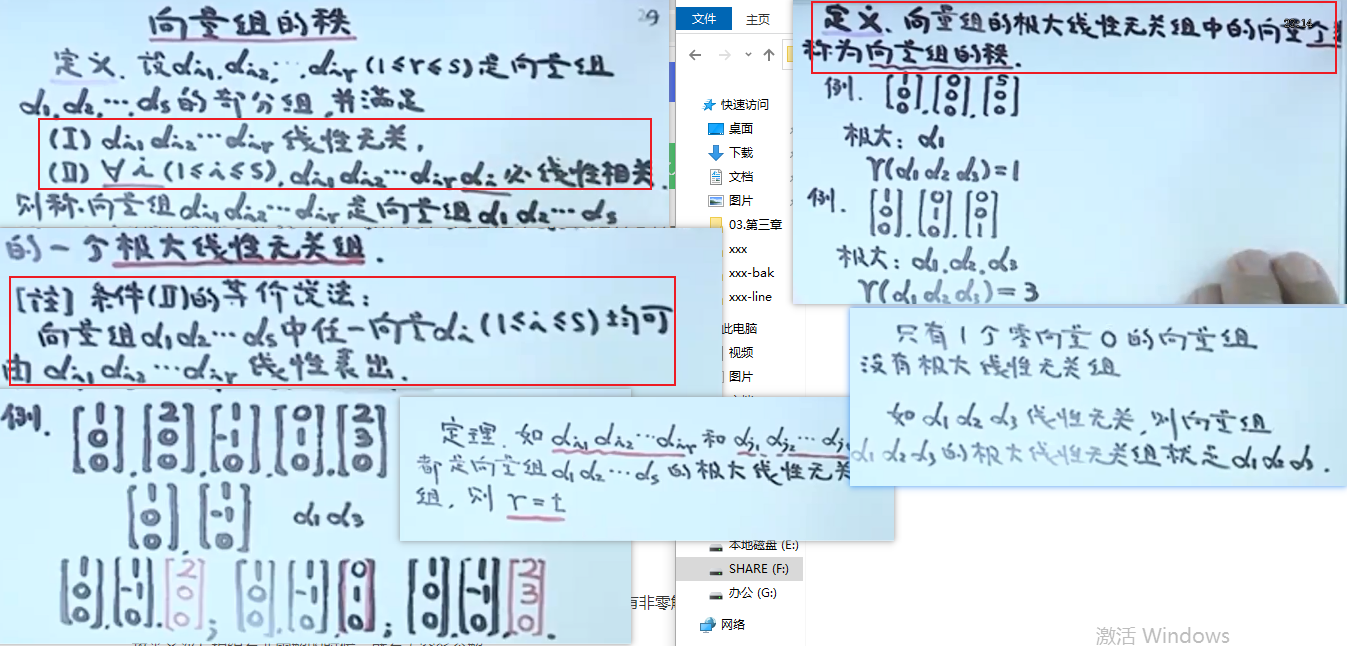 向量组的秩
29
定义. 设αi1,αi2,…,αir (1≤r≤s)是向量组
α1,α2,…αs的部分组,并满足
(Ⅰ) αi1 αi2…αir 线性无关,
(Ⅱ) ∀i (1≤i≤s), αi1 αi2…αir αi 必线性相关.
则称.向量组αi1 αi2…αir是向量组α1 α2…αs
的一个极大线性无关组.
[注] 条件(Ⅱ)的等价说法:
向量组α1 α2…αs中任一向量αi (1≤i≤s)均可
由αi1 αi2…αir 线性表出.
例. [1 0 0], [2 0 0], [1 -1 0], [0 1 0], [2 3 0]
[1 0 0], [1 -1 0] α1 α3
[1 0 0], [1 -1 0], [2 0 0]; [1 0 0], [1 -1 0], [0 1 0]; [1 0 0], [1 -1 0], [2 3 0].
定理. 如αi1 αi2…αir和αj1, αj2…αj
都是向量组α1 α2…αs的极大线性无关
组, 则 r=t
文件
主页
快速访问
桌面
下载
文档
图片
03.第三章
xxx
xxx-bak
xxx-line
此电脑
视频
图片
本地磁盘 (E:)
SHARE (F:)
办公 (G:)
网络
有非零解
定义. 向量组的极大线性无关组中的向量个
称为向量组的秩.
例. [1 0 0], [0 0 0], [5 0 0]
极大: α1
r(α1 α2 α3)=1
例. [1 0 0], [0 1 0], [0 0 1]
极大: α1, α2, α3
r(α1 α2 α3)=3
只有1个零向量0的向量组
没有极大线性无关组
如α1 α2 α3线性无关,则向量组
α1 α2 α3的极大线性无关组就是α1 α2 α3.
激活 Windows